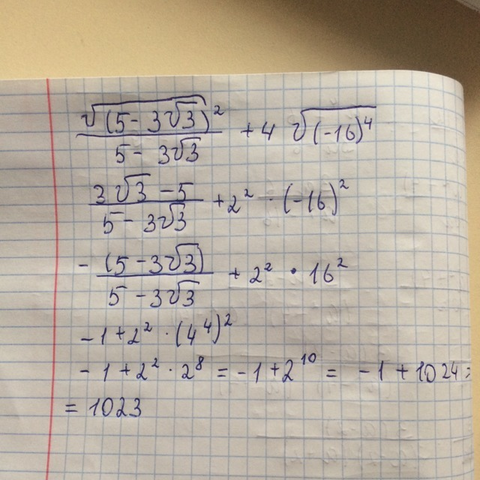 √(5 - 3√3)² / 5 - 3√3 + 4 √(-16)⁴
3√3 - 5 / 5 - 3√3 + 2² · (-16)²
- (5 - 3√3) / 5 - 3√3 + 2² · 16²
- 1 + 2² · (4⁴)²
- 1 + 2² · 2⁸ = - 1 + 2¹⁰ = - 1 + 1024 =
= 1023